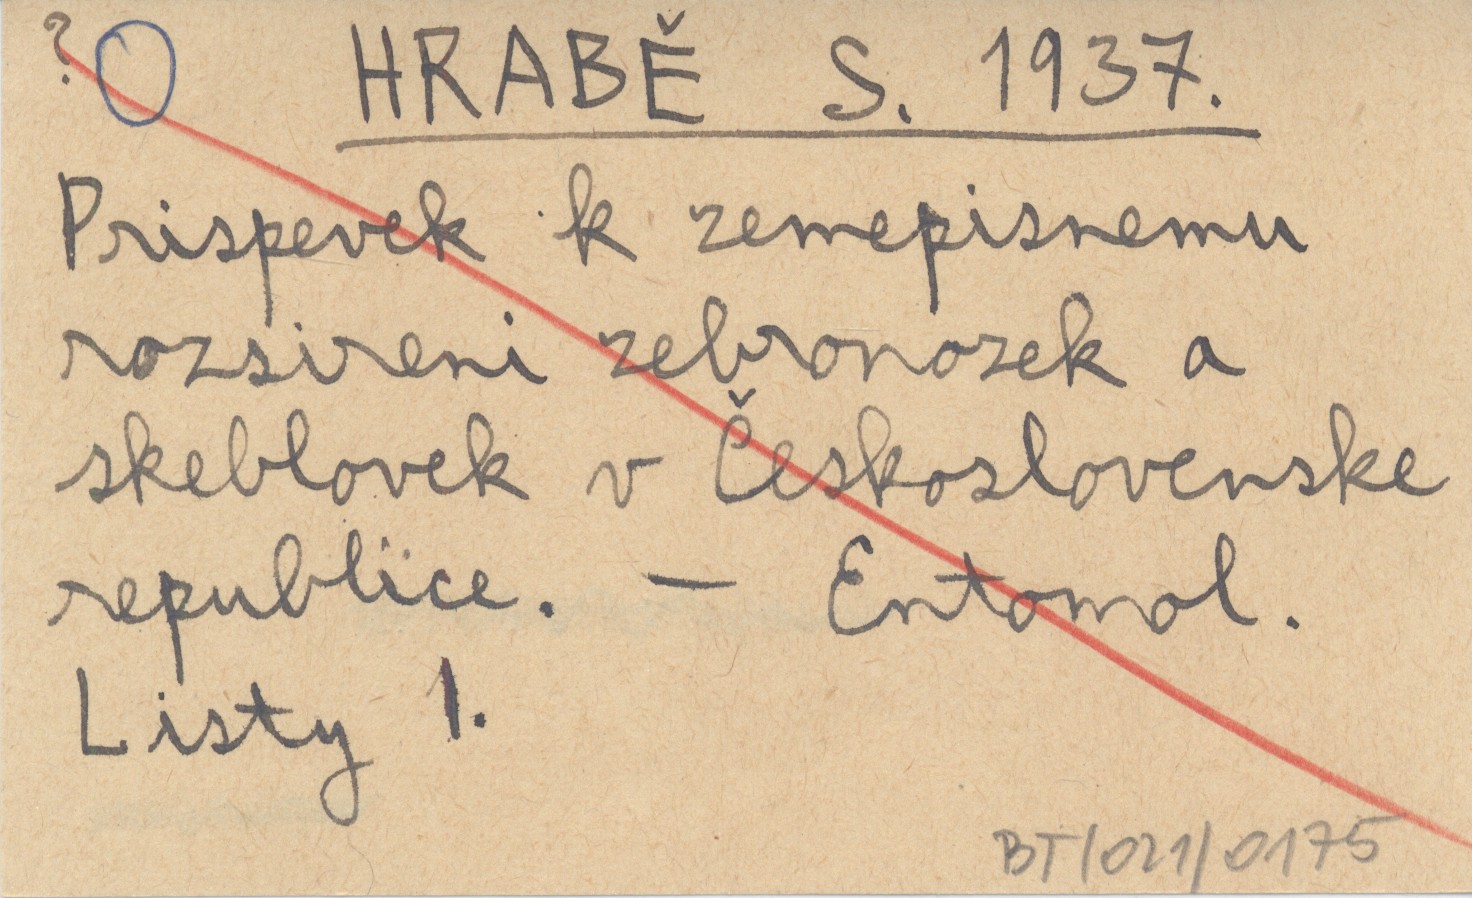 ?
HRABĚ S. 1937.
Prispevek k zemepisnemu
rozsireni zebronozek a
skeblovek v Československe
republice. — Entomol.
Listy 1.
BT/021/0175